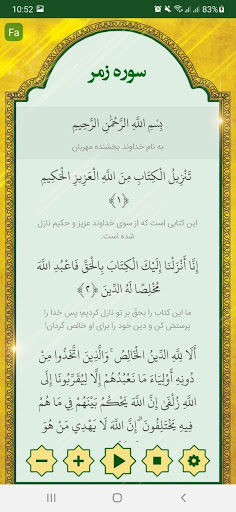 10:52
83%
Fa
سوره زمر
بِسْمِ اللَّهِ الرَّحْمَٰنِ الرَّحِيمِ
به نام خداوند بخشنده مهربان
تَنْزِيلُ الْكِتَابِ مِنَ اللَّهِ الْعَزِيزِ الْحَكِيمِ
﴿۱﴾
این کتابی است که از سوی خداوند عزیز و حکیم نازل
شده است.
إِنَّا أَنْزَلْنَا إِلَيْكَ الْكِتَابَ بِالْحَقِّ فَاعْبُدِ اللَّهَ
مُخْلِصًا لَهُ الدِّينَ ﴿۲﴾
ما این کتاب را بحقّ بر تو نازل کردیم؛ پس خدا را
پرستش کن و دین خود را برای او خالص گردان!
أَلَا لِلَّهِ الدِّينُ الْخَالِصُ ۚ وَالَّذِينَ اتَّخَذُوا مِنْ
دُونِهِ أَوْلِيَاءَ مَا نَعْبُدُهُمْ إِلَّا لِيُقَرِّبُونَا إِلَى
اللَّهِ زُلْفَىٰ إِنَّ اللَّهَ يَحْكُمُ بَيْنَهُمْ فِي مَا هُمْ
فِيهِ يَخْتَلِفُونَ ۗ إِنَّ اللَّهَ لَا يَهْدِي مَنْ هُوَ